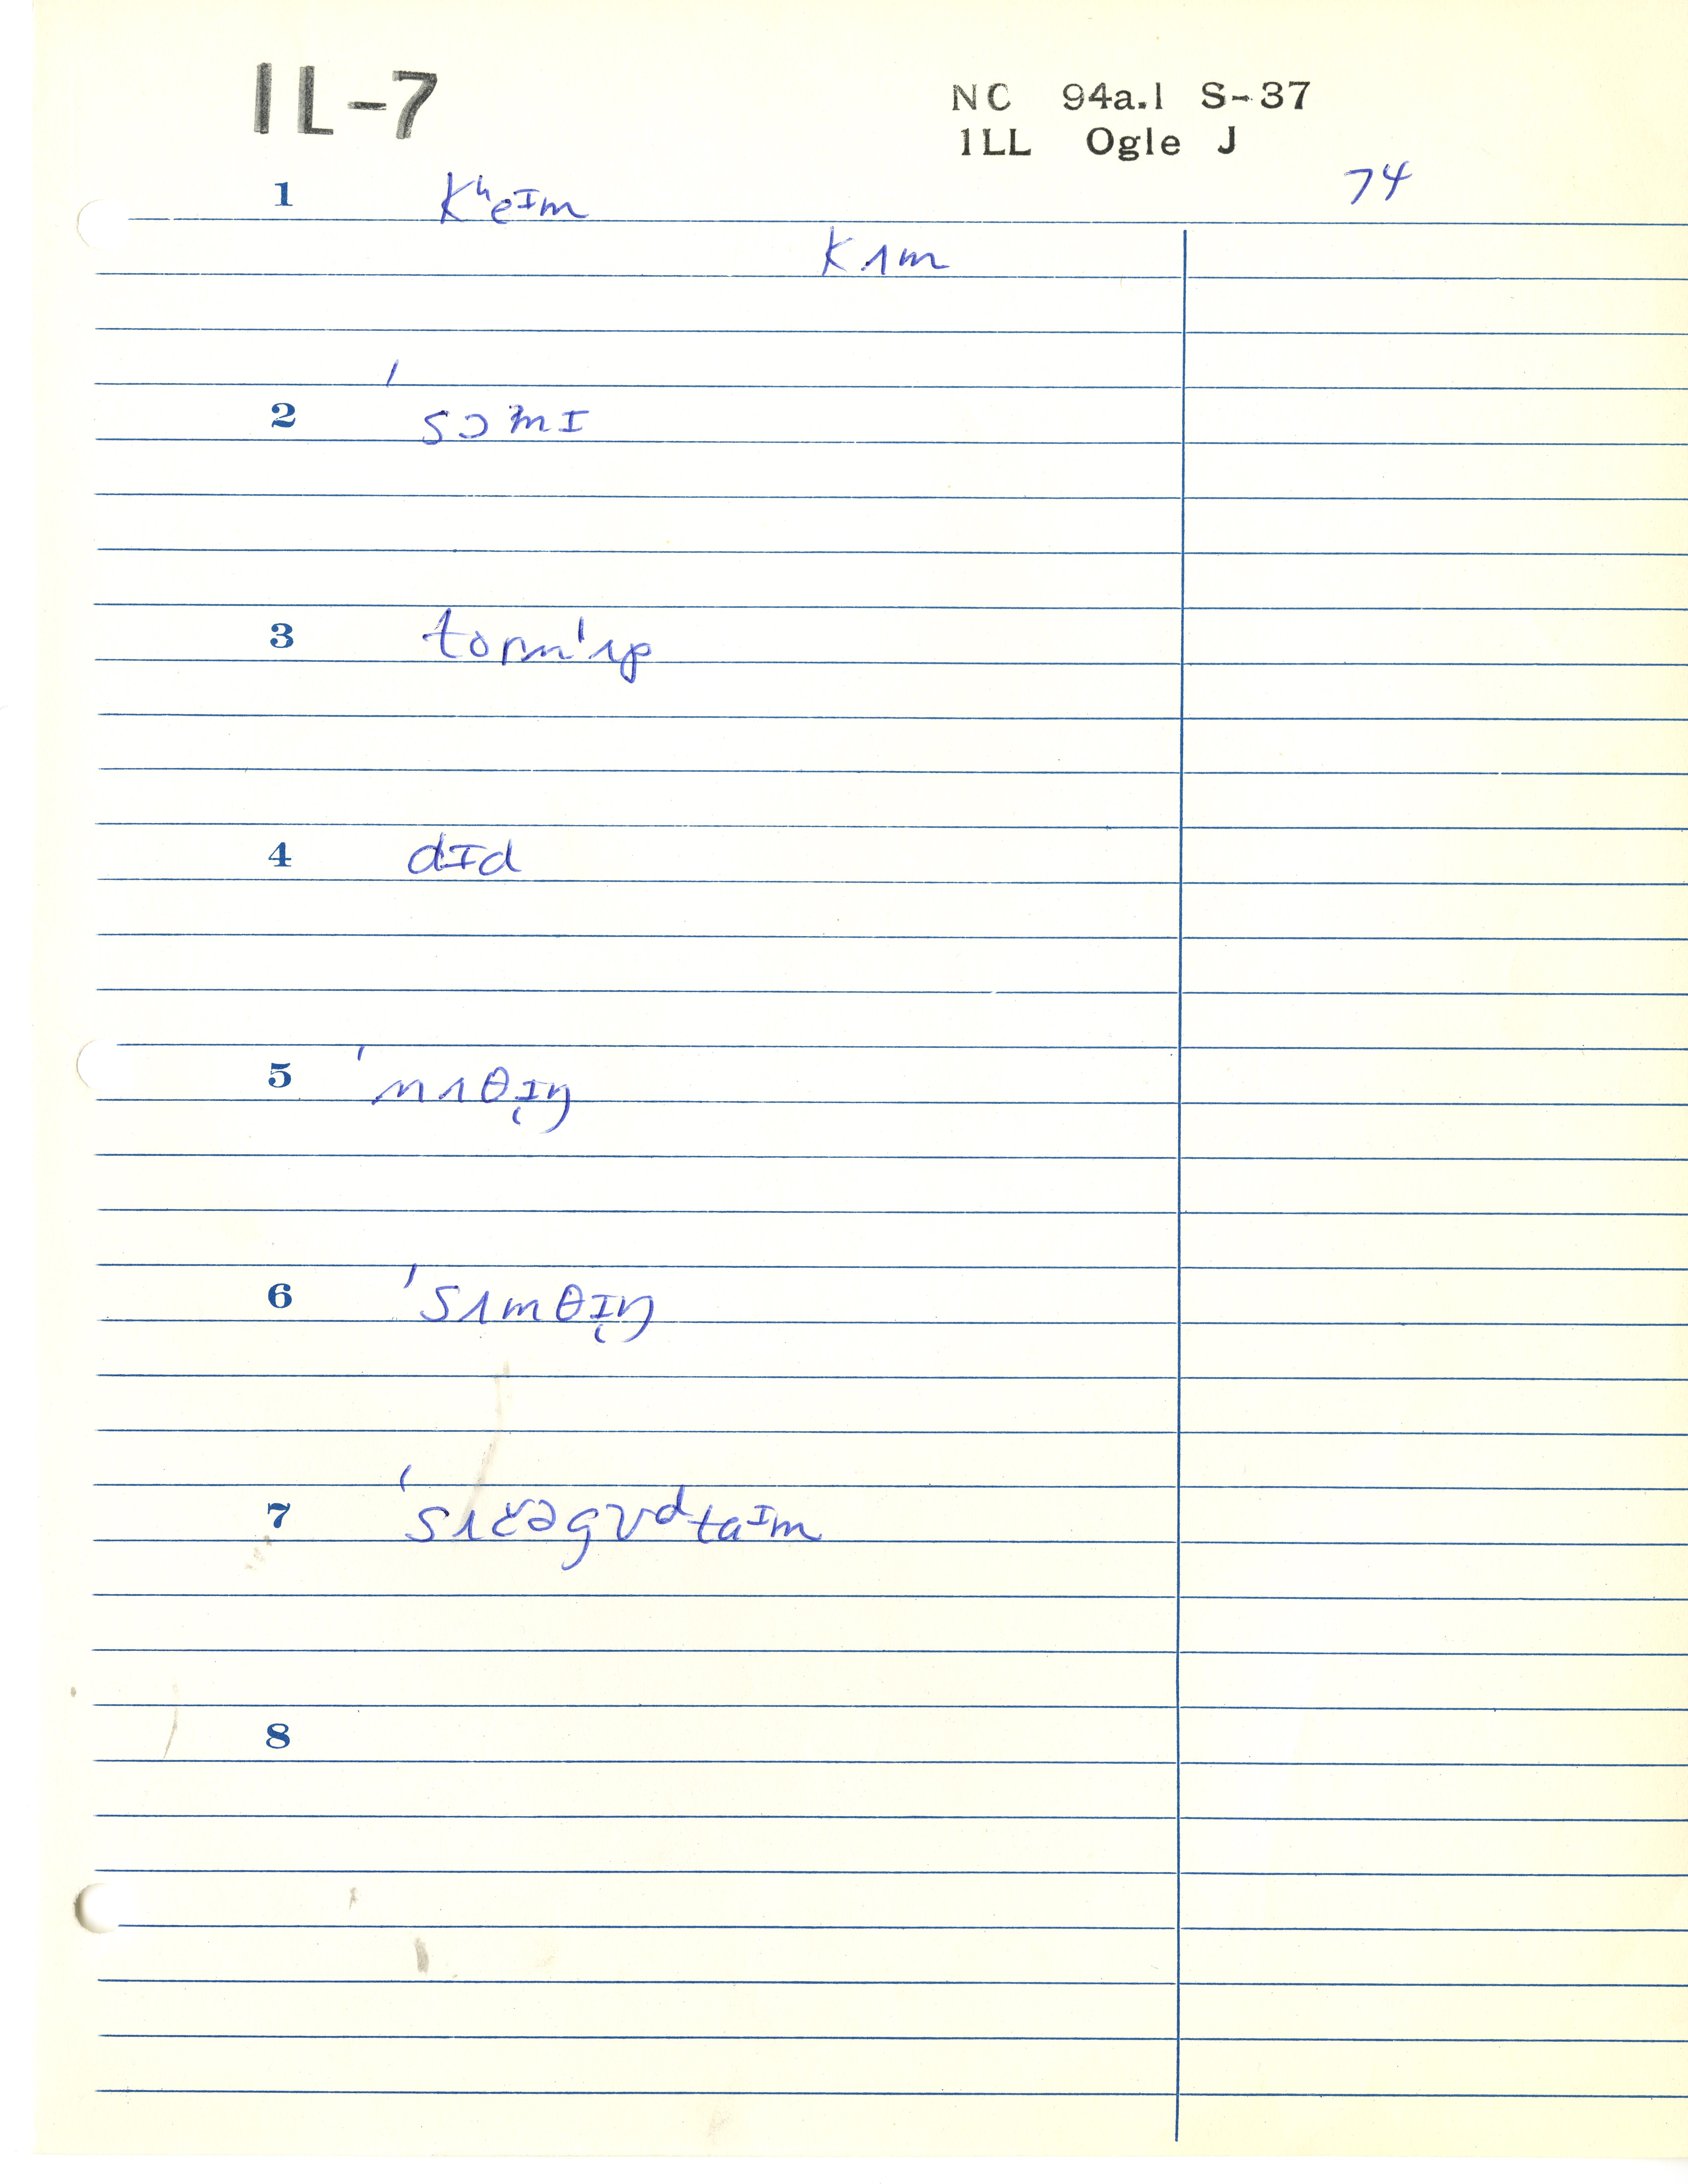 IL-7
NC 94a.1 S-37
ILL Ogle J
74
1 kʰeᴵm
kʌm
2 ˈsɔmɪ
3 tɔrnˈʌp
4 dɪd
5 ˈnʌθɪ̨ŋ
6 ˈsʌmθɪ̨ŋ
7 ˈsʌčəgʊᵈtaᴵm
8